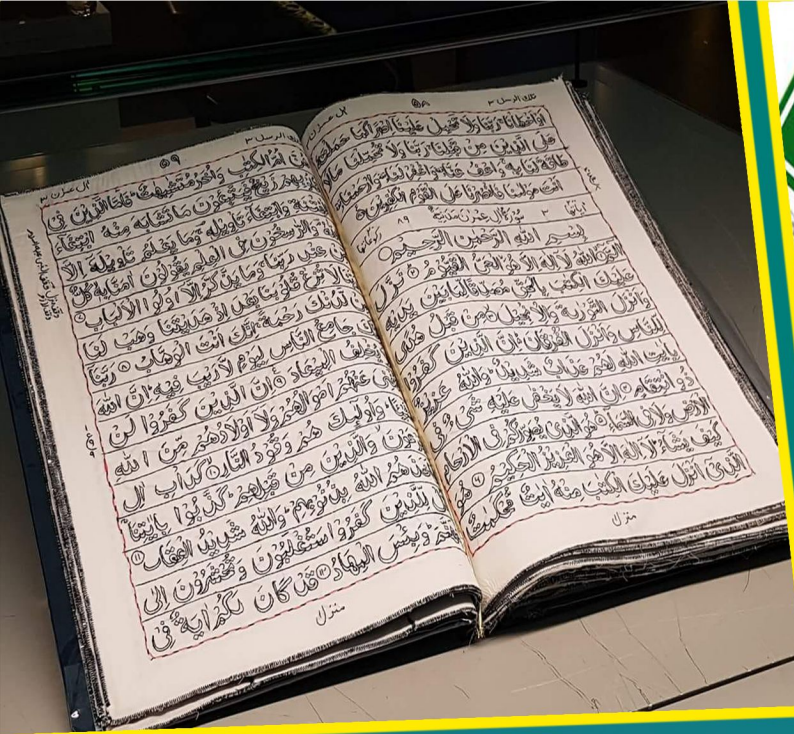 تلك الرسل ٣
٥٨
ال عمرٰن ٣
اَوْ اَخْطَاْنَا رَبَّنَا وَلَا تَحْمِلْ عَلَيْنَا اِصْرًا كَمَا حَمَلْتَهٗ
عَلَى الَّذِيْنَ مِنْ قَبْلِنَا رَبَّنَا وَلَا تُحَمِّلْنَا مَا لَا
طَاقَةَ لَنَا بِهٖ وَاعْفُ عَنَّا وَاغْفِرْ لَنَا وَارْحَمْنَا
اَنْتَ مَوْلٰىنَا فَانْصُرْنَا عَلَى الْقَوْمِ الْكٰفِرِيْنَ
٣ سُوْرَةُ اٰلِ عِمْرٰنَ مَدَنِيَّةٌ ٨٩
بِسْمِ اللّٰهِ الرَّحْمٰنِ الرَّحِيْمِ
الٓمّٓ اللّٰهُ لَآ اِلٰهَ اِلَّا هُوَ الْحَيُّ الْقَيُّوْمُ نَزَّلَ
عَلَيْكَ الْكِتٰبَ بِالْحَقِّ مُصَدِّقًا لِّمَا بَيْنَ يَدَيْهِ
وَاَنْزَلَ التَّوْرٰىةَ وَالْاِنْجِيْلَ مِنْ قَبْلُ هُدًى
لِّلنَّاسِ وَاَنْزَلَ الْفُرْقَانَ اِنَّ الَّذِيْنَ كَفَرُوْا
بِاٰيٰتِ اللّٰهِ لَهُمْ عَذَابٌ شَدِيْدٌ وَاللّٰهُ عَزِيْزٌ
ذُو انْتِقَامٍ اِنَّ اللّٰهَ لَا يَخْفٰى عَلَيْهِ شَيْءٌ فِى
الْاَرْضِ وَلَا فِى السَّمَآءِ هُوَ الَّذِيْ يُصَوِّرُكُمْ فِى الْاَرْحَامِ
كَيْفَ يَشَآءُ لَآ اِلٰهَ اِلَّا هُوَ الْعَزِيْزُ الْحَكِيْمُ ٦ هُوَ
الَّذِيْٓ اَنْزَلَ عَلَيْكَ الْكِتٰبَ مِنْهُ اٰيٰتٌ مُّحْكَمٰتٌ
منزل
تلك الرسل ٣
٥٩
ال عمرٰن ٣
اُمُّ الْكِتٰبِ وَاُخَرُ مُتَشٰبِهٰتٌ فَاَمَّا الَّذِيْنَ فِيْ
قُلُوْبِهِمْ زَيْغٌ فَيَتَّبِعُوْنَ مَا تَشَابَهَ مِنْهُ ابْتِغَآءَ
الْفِتْنَةِ وَابْتِغَآءَ تَاْوِيْلِهٖ وَمَا يَعْلَمُ تَاْوِيْلَهٗٓ اِلَّا
وَالرّٰسِخُوْنَ فِى الْعِلْمِ يَقُوْلُوْنَ اٰمَنَّا بِهٖ كُلٌّ
مِّنْ عِنْدِ رَبِّنَا وَمَا يَذَّكَّرُ اِلَّآ اُولُوا الْاَلْبَابِ
لَا تُزِغْ قُلُوْبَنَا بَعْدَ اِذْ هَدَيْتَنَا وَهَبْ لَنَا
لَّدُنْكَ رَحْمَةً اِنَّكَ اَنْتَ الْوَهَّابُ ٨ رَبَّنَآ
جَامِعُ النَّاسِ لِيَوْمٍ لَّا رَيْبَ فِيْهِ اِنَّ اللّٰهَ
يُخْلِفُ الْمِيْعَادَ اِنَّ الَّذِيْنَ كَفَرُوْا لَنْ
عَنْهُمْ اَمْوَالُهُمْ وَلَآ اَوْلَادُهُمْ مِّنَ اللّٰهِ
وَاُولٰٓئِكَ هُمْ وَقُوْدُ النَّارِ كَدَاْبِ اٰلِ
وَالَّذِيْنَ مِنْ قَبْلِهِمْ كَذَّبُوْا بِاٰيٰتِنَا
اللّٰهُ بِذُنُوْبِهِمْ وَاللّٰهُ شَدِيْدُ الْعِقَابِ ١١
لِّلَّذِيْنَ كَفَرُوْا سَتُغْلَبُوْنَ وَتُحْشَرُوْنَ اِلٰى
وَبِئْسَ الْمِهَادُ ١٢ قَدْ كَانَ لَكُمْ اٰيَةٌ فِيْ
منزل